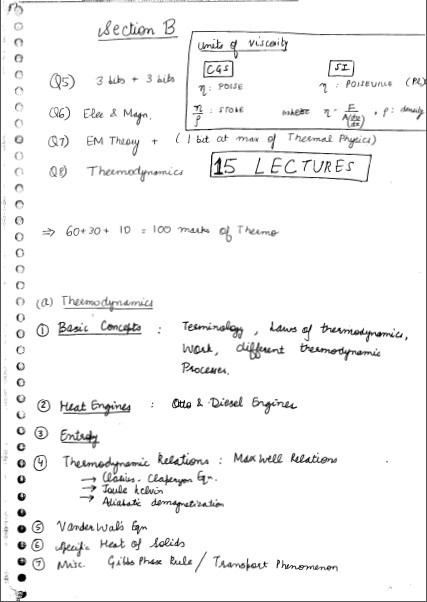 Section B
Units of viscosity
CGS SI
η : POISE η : POISEUILLE (PL)
η/ρ : STOKE where η = F/A(dv/dx), ρ : density
Q5) 3 bits + 3 bits
Q6) Elec & Magn.
Q7) EM Theory + (1 bit at max of Thermal Physics)
Q8) Thermodynamics 15 LECTURES
⇒ 60+30+ 10 = 100 marks of Thermo
(a) Thermodynamics
① Basic Concepts : Terminology, Laws of thermodynamics,
Work, different thermodynamic
Processes.
② Heat Engines : Otto & Diesel Engines
③ Entropy
④ Thermodynamic Relations : Maxwell Relations
→ Clasius-Claperyon Eqn.
→ Joule Kelvin
→ Adiabatic demagnetization
⑤ VanderWal's Eqn
⑥ Specific Heat of Solids
⑦ Misc. Gibbs Phase Rule / Transport Phenomenon